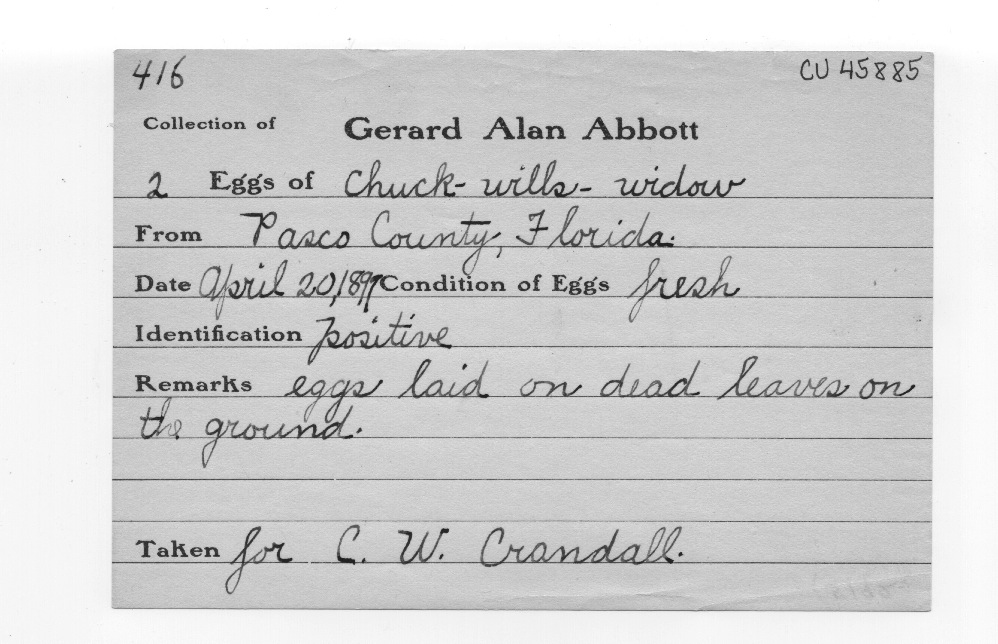 416 CU 45885
Collection of Gerard Alan Abbott
2 Eggs of Chuck-wills-widow
From Pasco County, Florida.
Date April 20, 1897 Condition of Eggs fresh
Identification positive
Remarks eggs laid on dead leaves on
the ground.
Taken for C. W. Crandall.